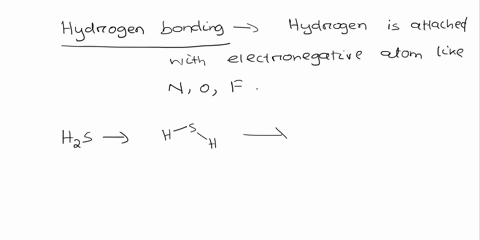 Hydrogen bonding → Hydrogen is attached
with electronegative atom like
N, O, F .
H₂S → H-S-H →